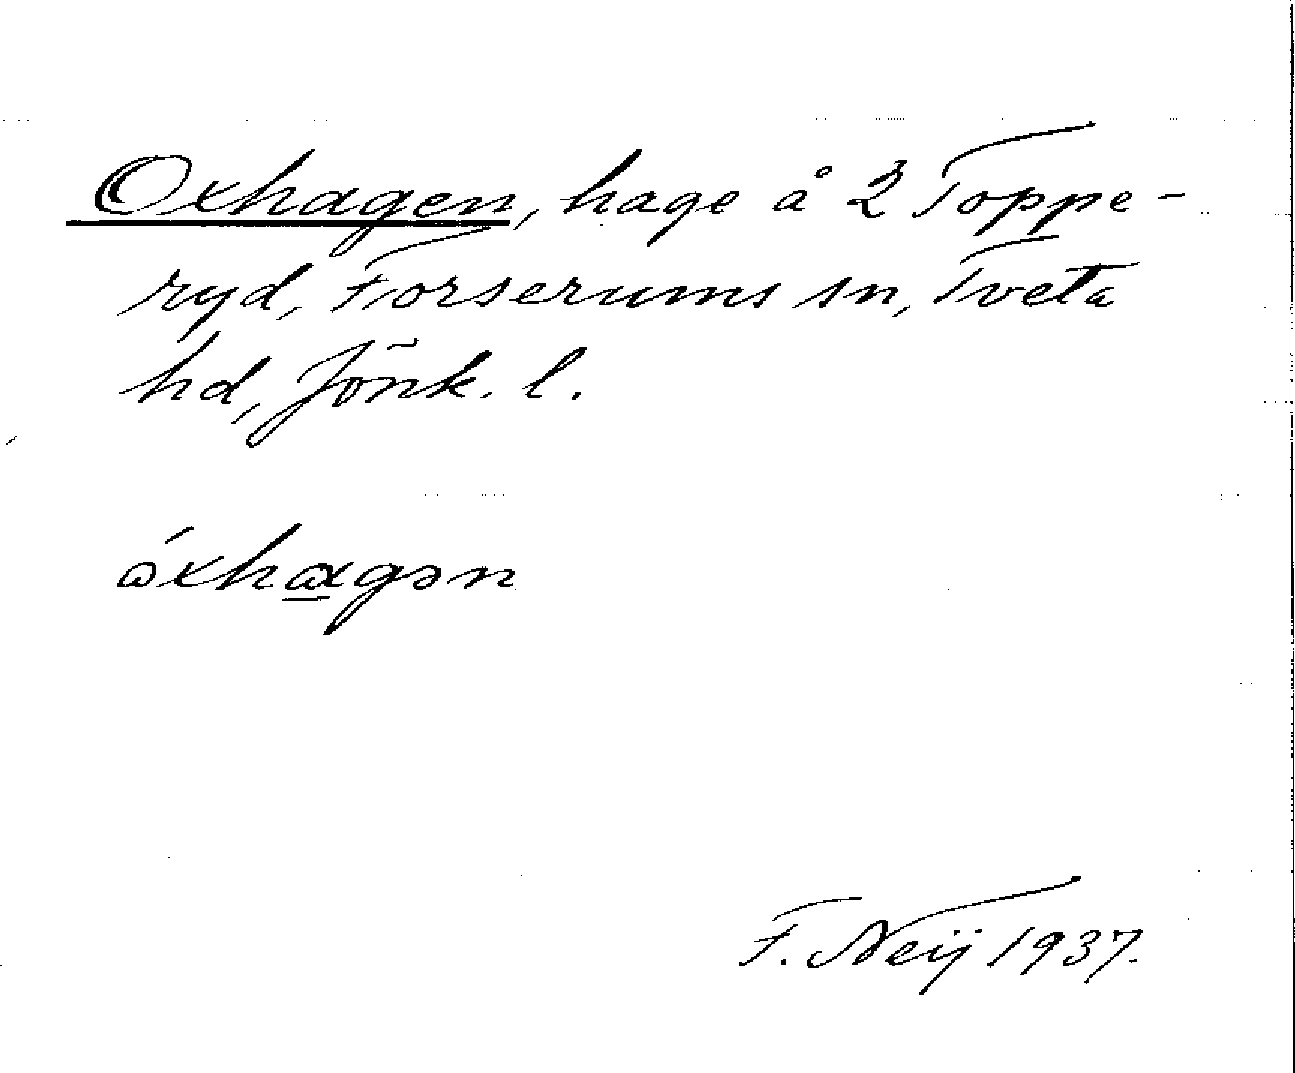 Oxhagen, hage å 2 Toppe-
ryd, Forserums sn, Tveta
hd, Jönk. l.
óxhagən
F. Neij 1937.